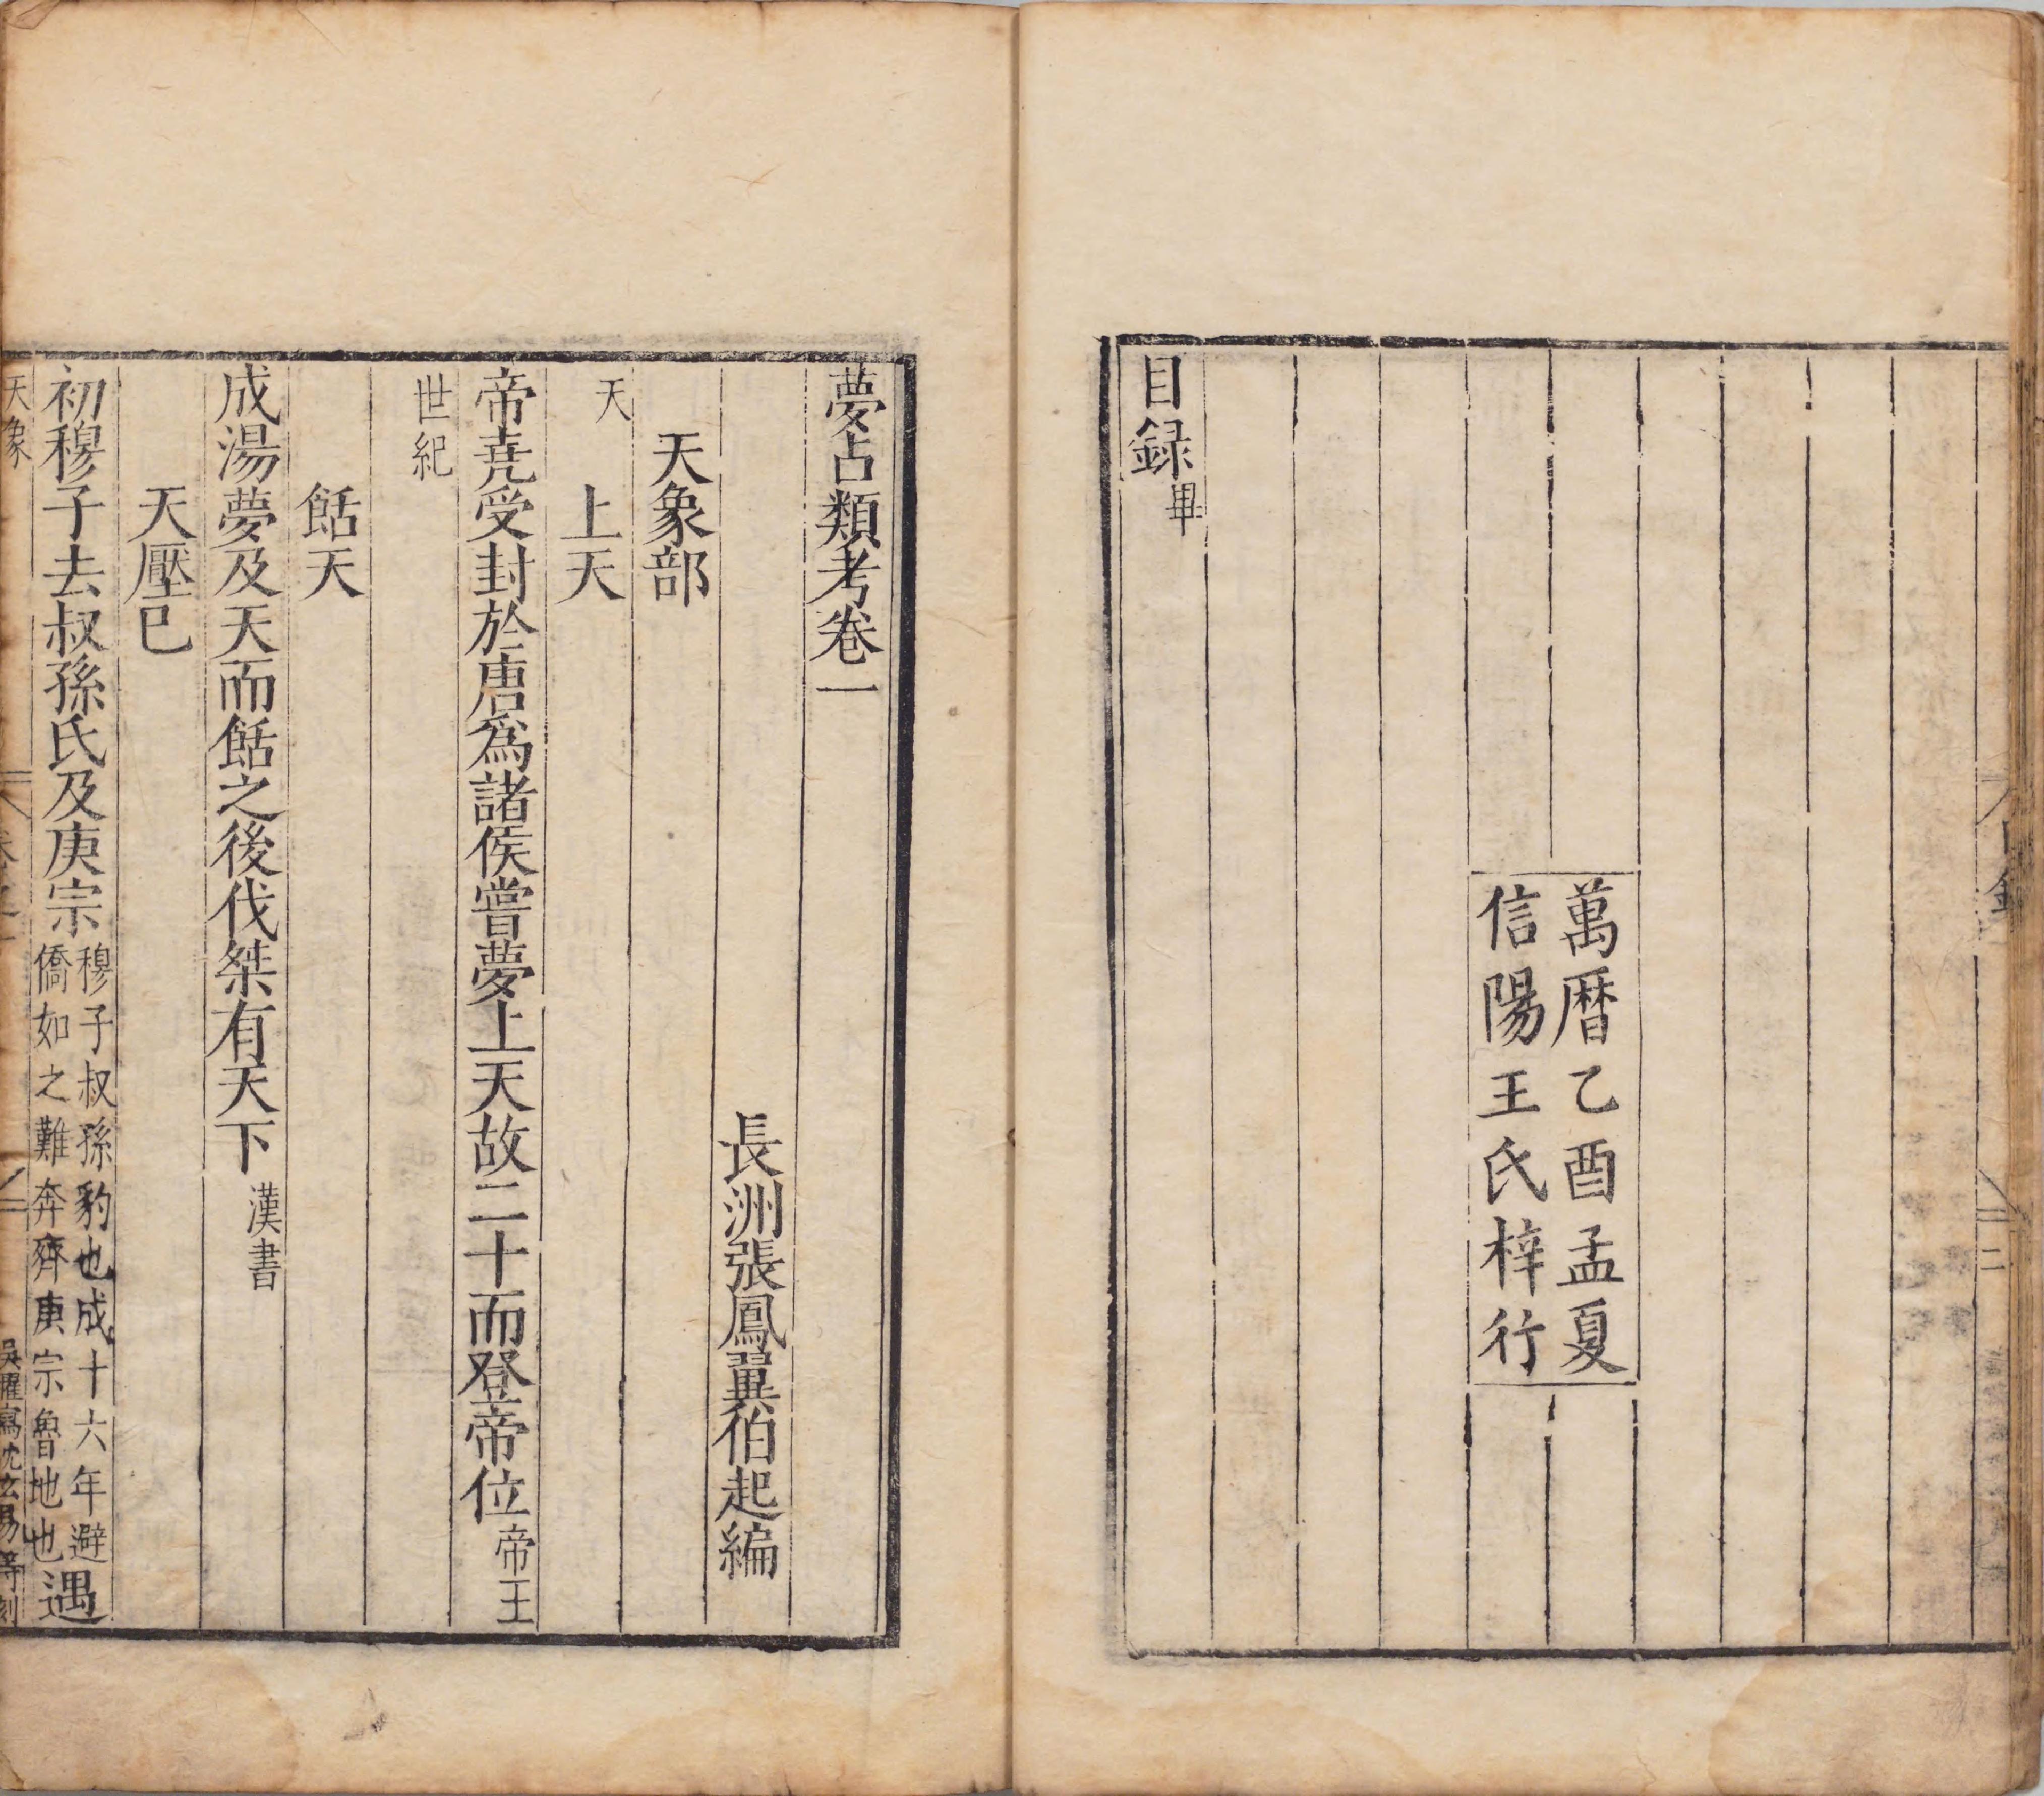 目錄
二
萬曆乙酉孟夏
信陽王氏梓行
目録畢
夢占類考卷一
長洲張鳳翼伯起編
天象部
天
上天
帝堯受封於唐爲諸侯嘗夢上天故二十而登帝位帝王
世紀
餂天
成湯夢及天而餂之後伐桀有天下漢書
天壓已
初穆子去叔孫氏及庚宗穆子叔孫豹也成十六年避
僑如之難奔齊庚宗魯地也遇
天象
吳曜寫沈玄易等刻